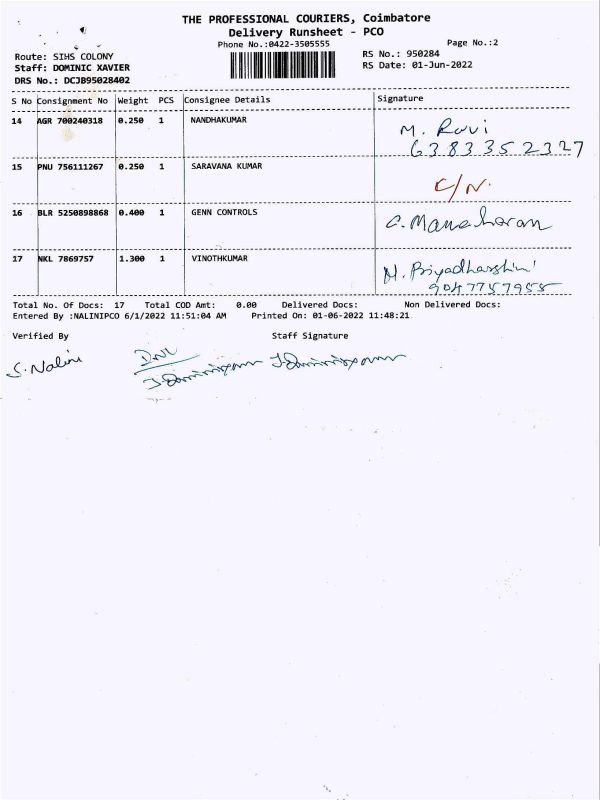 THE PROFESSIONAL COURIERS, Coimbatore
Delivery Runsheet - PCO
Phone No.:0422-3505555 Page No.:2
Route: SIHS COLONY RS No.: 950284
Staff: DOMINIC XAVIER RS Date: 01-Jun-2022
DRS No.: DCJB95028402
S No Consignment No Weight PCS Consignee Details Signature
14 AGR 700240318 0.250 1 NANDHAKUMAR M. Ravi
6383352327
15 PNU 756111267 0.250 1 SARAVANA KUMAR C/N.
16 BLR 5250898868 0.400 1 GENN CONTROLS C. Manoharan
17 NKL 7869757 1.300 1 VINOTHKUMAR M. Priyadharshini
9047757955
Total No. Of Docs: 17 Total COD Amt: 0.00 Delivered Docs: Non Delivered Docs:
Entered By :NALINIPCO 6/1/2022 11:51:04 AM Printed On: 01-06-2022 11:48:21
Verified By Staff Signature
S. Nalini